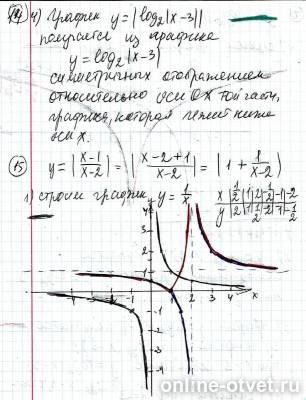 4) График y = |log₂|x-3||
получается из графика
y = log₂|x-3|
симметричных отображением
относительно оси OX той части,
графика, которая лежит ниже
оси X.
(15) y = |x-1/x-2| = |x-2+1/x-2| = |1 + 1/x-2|
1) строим график y = 1/x
x | 1/2 | 1 | 2 | -1/2 | -1 | -2
y | 2 | 1 | 1/2 | -2 | -1 | -1/2
y
4
3
2
1
-4 -3 -2 -1 0 1 2 3 4 x
-1
-2
-3
-4
online-otvet.ru